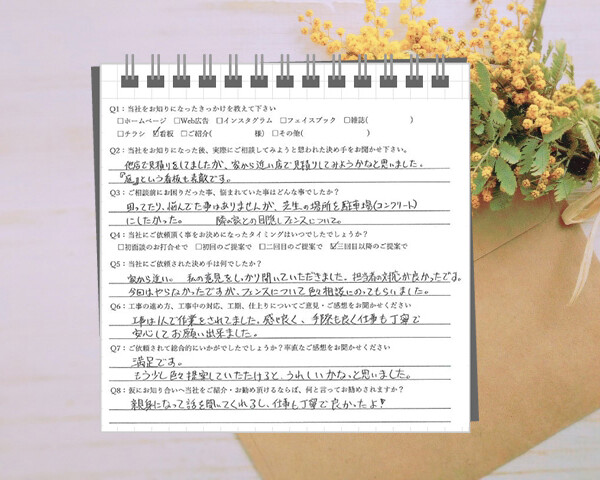 Q1：当社をお知りになったきっかけを教えて下さい
□ホームページ □Web広告 □インスタグラム □フェイスブック □雑誌( )
□チラシ ☑看板 □ご紹介( 様) □その他( )
Q2：当社をお知りになった後、実際にご相談してみようと思われた決め手をお聞かせ下さい。
他店で見積りをしてましたが、家から近い店で見積りしてみようかなと思いました。
『庭』という看板も素敵です。
Q3：ご相談前にお困りだった事、悩まれていた事はどんな事でしたか？
困ってたり、悩んでた事はありませんが、芝生の場所を駐車場(コンクリート)
にしたかった。 隣の家との目隠しフェンスについて。
Q4：当社にご依頼頂く事をお決めになったタイミングはいつでしたでしょうか？
□初面談のお打合せで □初回のご提案で □二回目のご提案で ☑三回目以降のご提案で
Q5：当社にご依頼された決め手は何でしたか？
家から近い。 私の意見をしっかり聞いていただきました。担当者の対応が良かったです。
今回はやらなかったですが、フェンスについて色々相談にのってもらいました。
Q6：工事の進め方、工事中の対応、工期、仕上りについてご意見・ご感想をお聞かせください
工事は1人で作業をされてました。感じ良く、手際も良く仕事も丁寧で
安心してお願い出来ました。
Q7：ご依頼されて総合的にいかがでしたでしょうか？率直なご感想をお聞かせください
満足です。
もう少し色々提案していただけると、うれしいかなっと思いました。
Q8：仮にお知り合いへ当社をご紹介・お勧め頂けるならば、何と言ってお勧めされますか？
親身になって話を聞いてくれるし、仕事も丁寧で良かったよ！